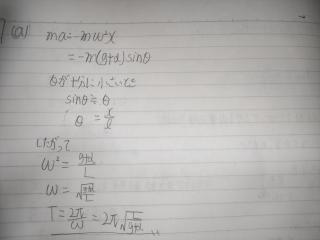 7 (a) ma = -mω²x
= -m(g+a) sinθ
θが十分に小さいとき
sinθ ≒ θ
θ = x/l
したがって
ω² = (g+a)/L
ω = √((g+a)/L)
T = 2π/ω = 2π√(L/(g+a))